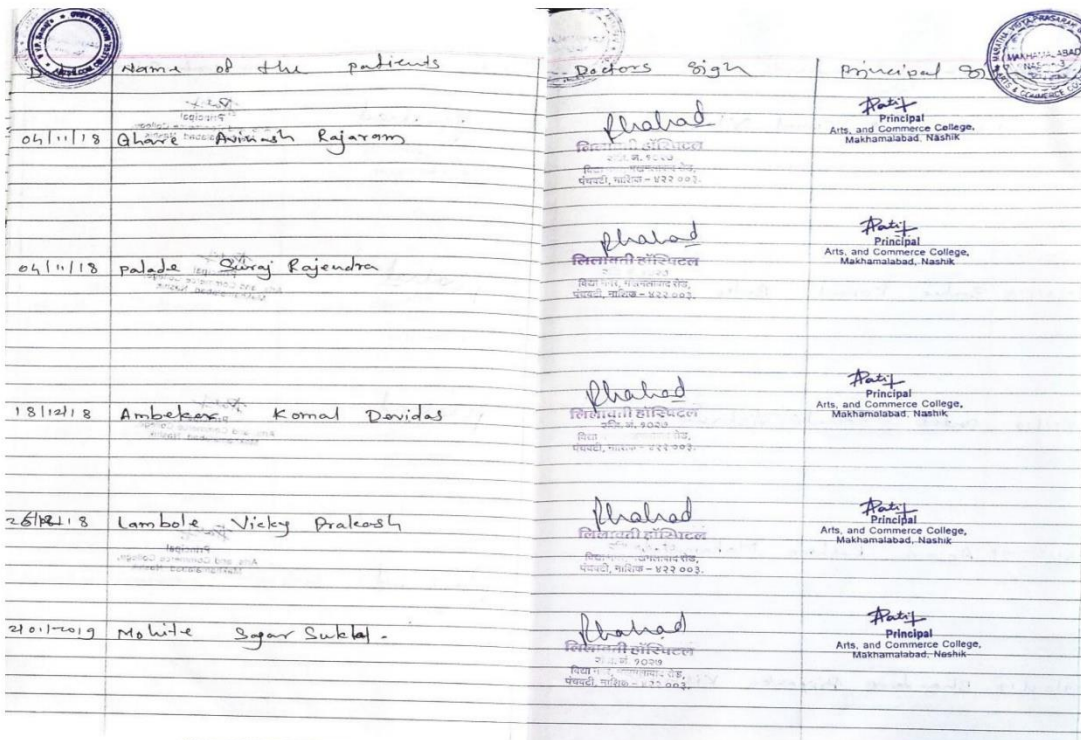 Name of the patients Doctors Sign Principal
04/11/18 Ghare Avinash Rajaram
Phahad
लिलावती हॉस्पिटल
पंचवटी, नाशिक - ४२२ ००३.
Patil
Principal
Arts, and Commerce College,
Makhamalabad, Nashik
04/11/18 Palade Suraj Rajendra
Phahad
लिलावती हॉस्पिटल
विद्या नगर, मखमलाबाद रोड,
पंचवटी, नाशिक - ४२२ ००३.
Patil
Principal
Arts, and Commerce College,
Makhamalabad, Nashik
18/12/18 Ambekar Komal Devidas
Phahad
लिलावती हॉस्पिटल
रजि. नं. १०२७
पंचवटी, नाशिक - ४२२ ००३.
Patil
Principal
Arts, and Commerce College,
Makhamalabad, Nashik
Lambole Vicky Prakash
Phahad
लिलावती हॉस्पिटल
पंचवटी, नाशिक - ४२२ ००३.
Patil
Principal
Arts, and Commerce College,
Makhamalabad, Nashik
2/01/2019 Mohite Sagar Suklal.
Phahad
लिलावती हॉस्पिटल
पंचवटी, नाशिक - ४२२ ००३.
Patil
Principal
Arts, and Commerce College,
Makhamalabad, Nashik